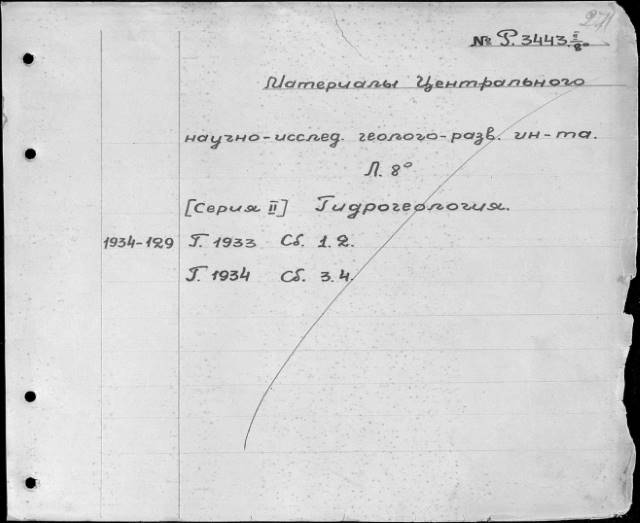 271
№ Р. 3443. II/8°
Материалы Центрального
научно-исслед. геолого-разв. ин-та.
Л. 8°
[Серия II] Гидрогеология.
1934-129 Г. 1933 Сб. 1.2.
Г. 1934 Сб. 3.4.